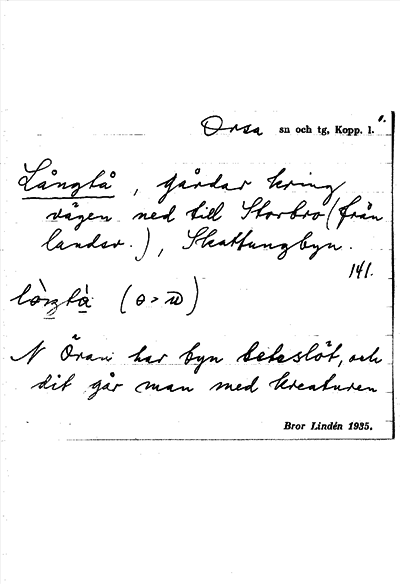 Orsa sn och tg, Kopp. l.
Långtå, gårdar kring
vägen ned till Storbro (från
landsv.), Skattungbyn.
141.
N Öran har byn beteslöt, och
dit går man med kreaturen
Bror Lindén 1935.